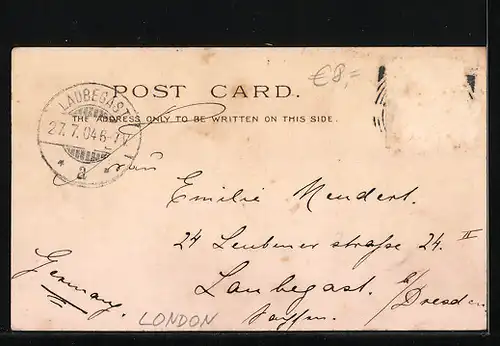 POST CARD.
€8,=
THE ADDRESS ONLY TO BE WRITTEN ON THIS SIDE.
LAUBEGAST
27.7.04 6-7N
* a *
Frau
Emilie Mendert.
24 Leubener straße 24. II
Laubegast. b/Dresden
Germany.
LONDON